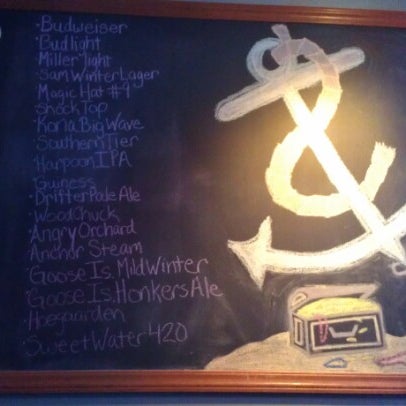 ·Budweiser
·Budlight
·Miller light
·Sam Winter Lager
Magic Hat #9
·Shock Top
·Kona Big Wave
·Southern Tier
·Harpoon IPA
·Guiness
·Drifter Pale Ale
·WoodChuck
·Angry Orchard
·Anchor Steam
·Goose Is. Mild Winter
·Goose Is. Honkers Ale
·Hoegaarden
·Sweet Water 420